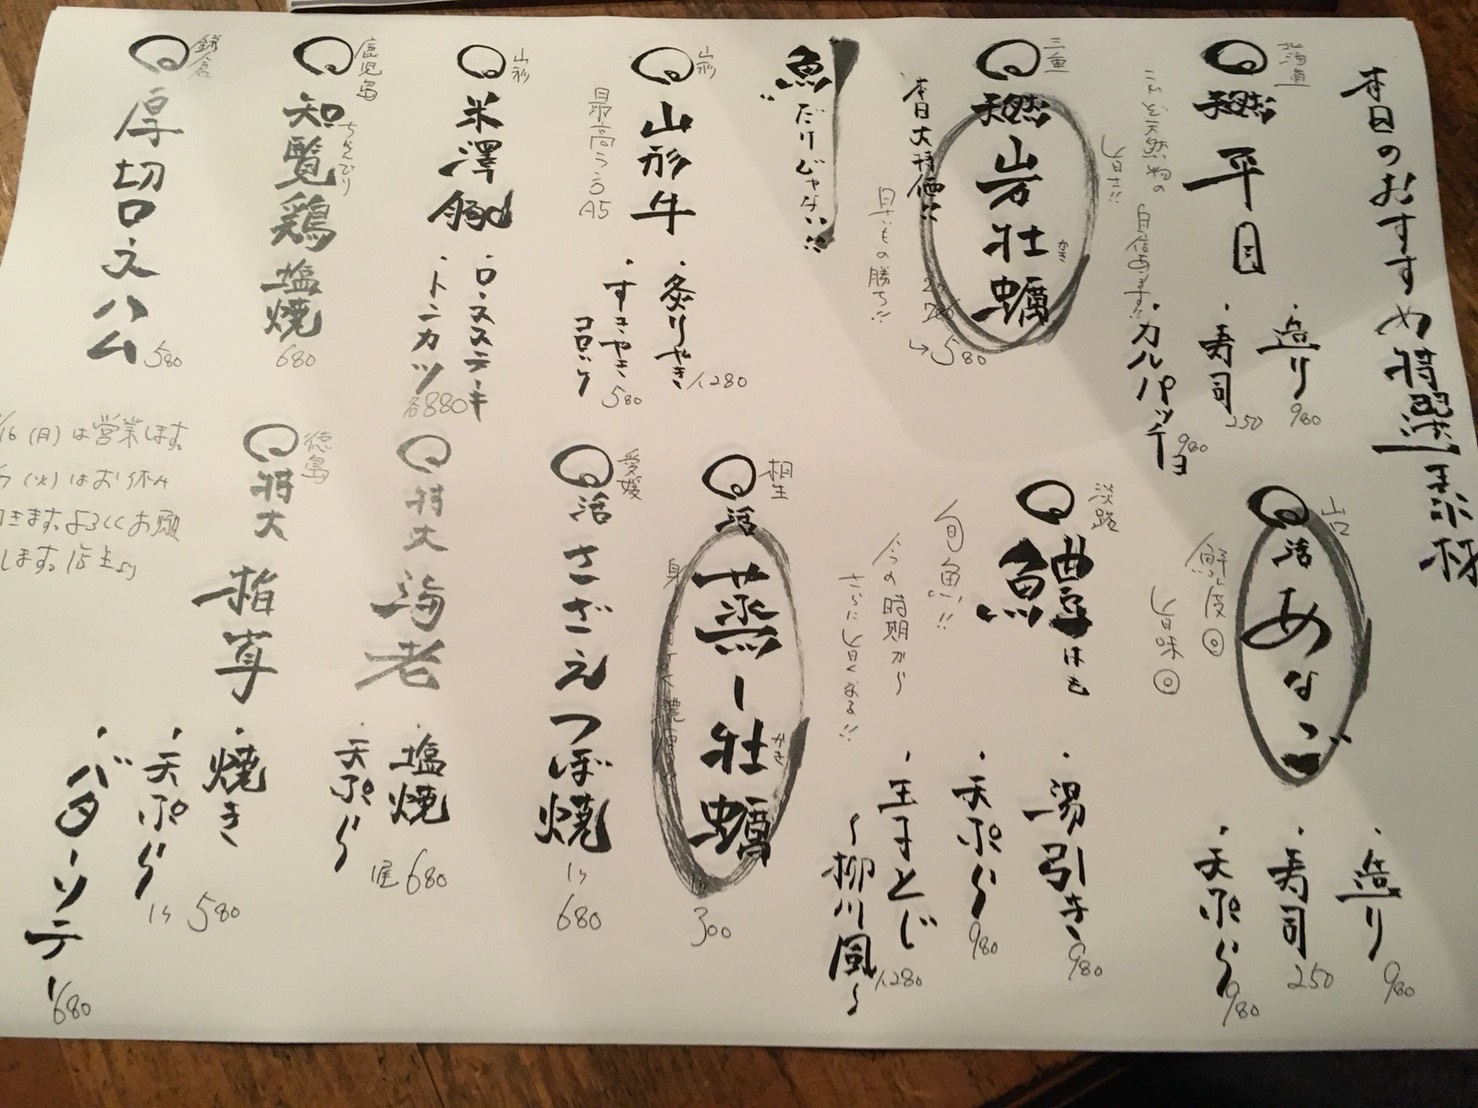 本日のおすすめ特選素材
北海道
天然
平目
・造り 980
・寿司 250
・カルパッチョ 980
これぞ天然物の
旨さ!!
自信あります!!
三重
天然
岩牡蠣
かき
本日大特価!!
→580
貝だもの勝ち!!
魚だけじゃない!!
山形
山形牛
最高ランク
A5
・炙りやき 1,280
・すきやき
コロッケ 580
山形
米澤豚
・ロースステーキ
・トンカツ
各880
鹿児島
知覧鶏
ちらんどり
塩焼
680
鎌倉
厚切ロースハム
580
山口
活
あなご
鮮度◎
旨味◎
・造り 980
・寿司 250
・天ぷら 980
淡路
鱧
はも
旬魚!!
今の時期から
さらに旨くなる!!
・湯引き 980
・天ぷら 980
・玉子とじ
〜柳川風〜
1,280
相生
活
蒸し牡蠣
かき
身
濃厚
1ヶ
300
愛媛
活
さざえつぼ焼
1ヶ
680
特大
海老
・塩焼
・天ぷら
1尾 680
徳島
特大
椎茸
・焼き
・天ぷら
1ヶ 580
・バターソテー
680
16(月)は営業します。
(火)はお休み
きます。よろしくお願
します。店主より